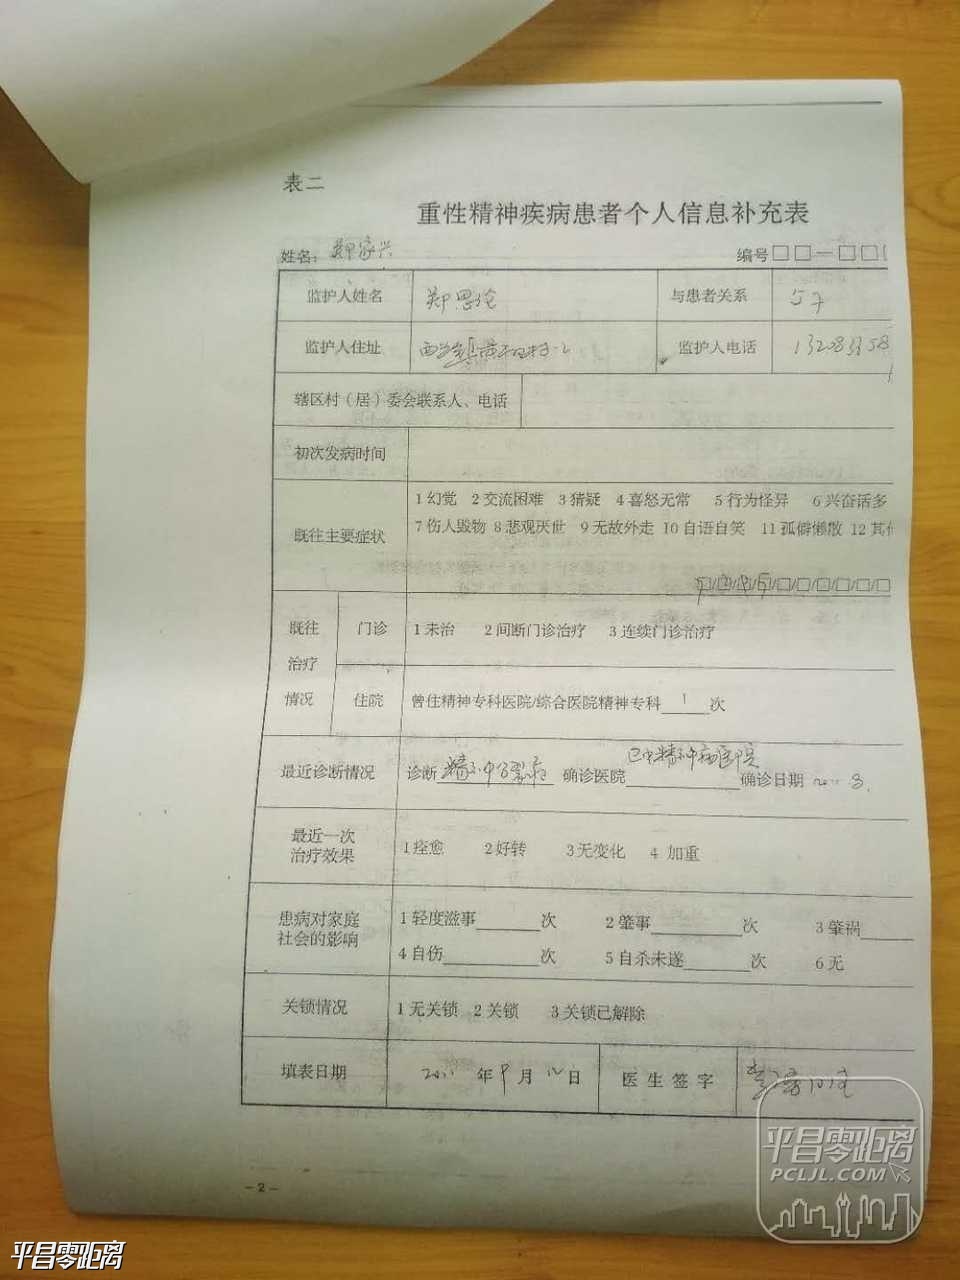 表二
重性精神疾病患者个人信息补充表
姓名: 郑家兴 编号□□－□□
监护人姓名 郑思伦 与患者关系 父子
监护人住址 监护人电话
辖区村(居)委会联系人、电话
初次发病时间
既往主要症状 1幻觉 2交流困难 3猜疑 4喜怒无常 5行为怪异 6兴奋话多
7伤人毁物 8悲观厌世 9无故外走 10自语自笑 11孤僻懒散 12其他
□/□/□/□/□/□/□/□/□/□
既往治疗情况 门诊 1未治 2间断门诊治疗 3连续门诊治疗
住院 曾住精神专科医院/综合医院精神专科 1 次
最近诊断情况 诊断 精神分裂症 确诊医院 巴中精神病医院 确诊日期
最近一次治疗效果 1痊愈 2好转 3无变化 4 加重
患病对家庭社会的影响 1轻度滋事______次 2肇事______次 3肇祸____
4自伤______次 5自杀未遂______次 6无
关锁情况 1无关锁 2关锁 3关锁已解除
填表日期 年9月12日 医生签字
平昌零距离
PCLJL.COM
－2－
平昌零距离